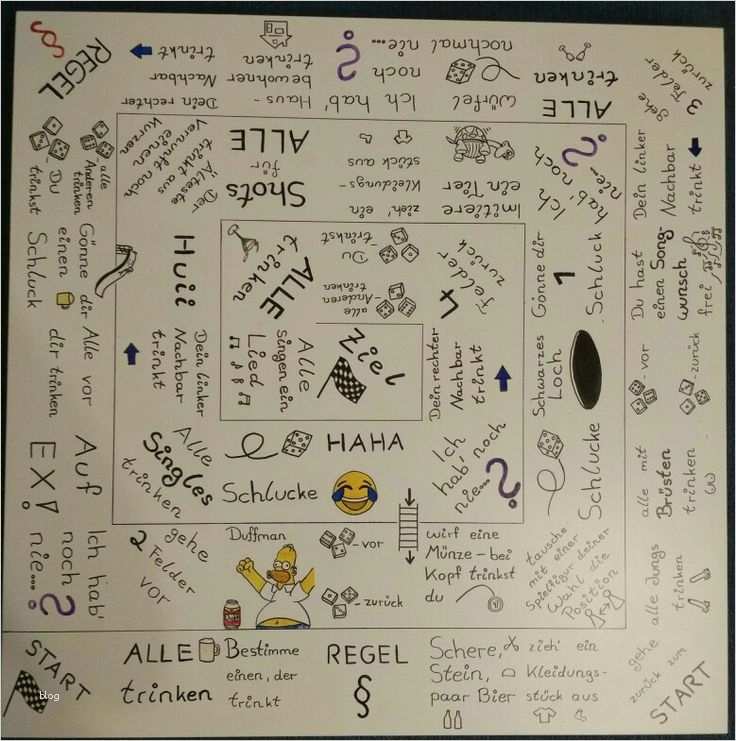 START
blog
ALLE
trinken
Bestimme
einen, der
trinkt
REGEL
§
Schere,
Stein,
paar Bier
zieh' ein
Kleidungs-
stück aus
gehe
zurück zum
START
alle Jungs
trinken
alle mit
Brüsten
trinken
-vor
-zurück
Du hast
einen Song-
wunsch
frei
Dein linker
Nachbar
trinkt
gehe
3 Felder
zurück
ALLE
trinken
würfel
nochmal
Ich hab'
noch
nie...
?
Haus-
bewohner
trinken
Dein rechter
Nachbar
trinkt
REGEL
§
alle
Anderen
trinken
- Du
trinkst
Gönne dir
einen
Schluck
Alle vor
dir trinken
Auf
EX!
Ich hab'
noch
nie...
?
gehe
2 Felder
vor
Duffman
-vor
-zurück
wirf eine
Münze - bei
Kopf trinkst
du
tausche
mit einer
Spielfigur deiner
Wahl die
Position
Schlucke
Schwarzes
Loch
Gönne dir
1
Schluck
Ich
hab' noch
nie...
?
Imitiere
ein Tier
zieh' ein
Kleidungs-
stück aus
Shots
für
ALLE
Der Älteste
trinkt aus
Vernunft noch
einen
Kurzen
Huii
Dein linker
Nachbar
trinkt
Alle
Singles
trinken
HAHA
Schlucke
Ich
hab' noch
nie...
?
Dein rechter
Nachbar
trinkt
4 Felder
zurück
Du
trinkst
-alle
Anderen
trinken
ALLE
trinken
Alle
singen ein
Lied
Ziel